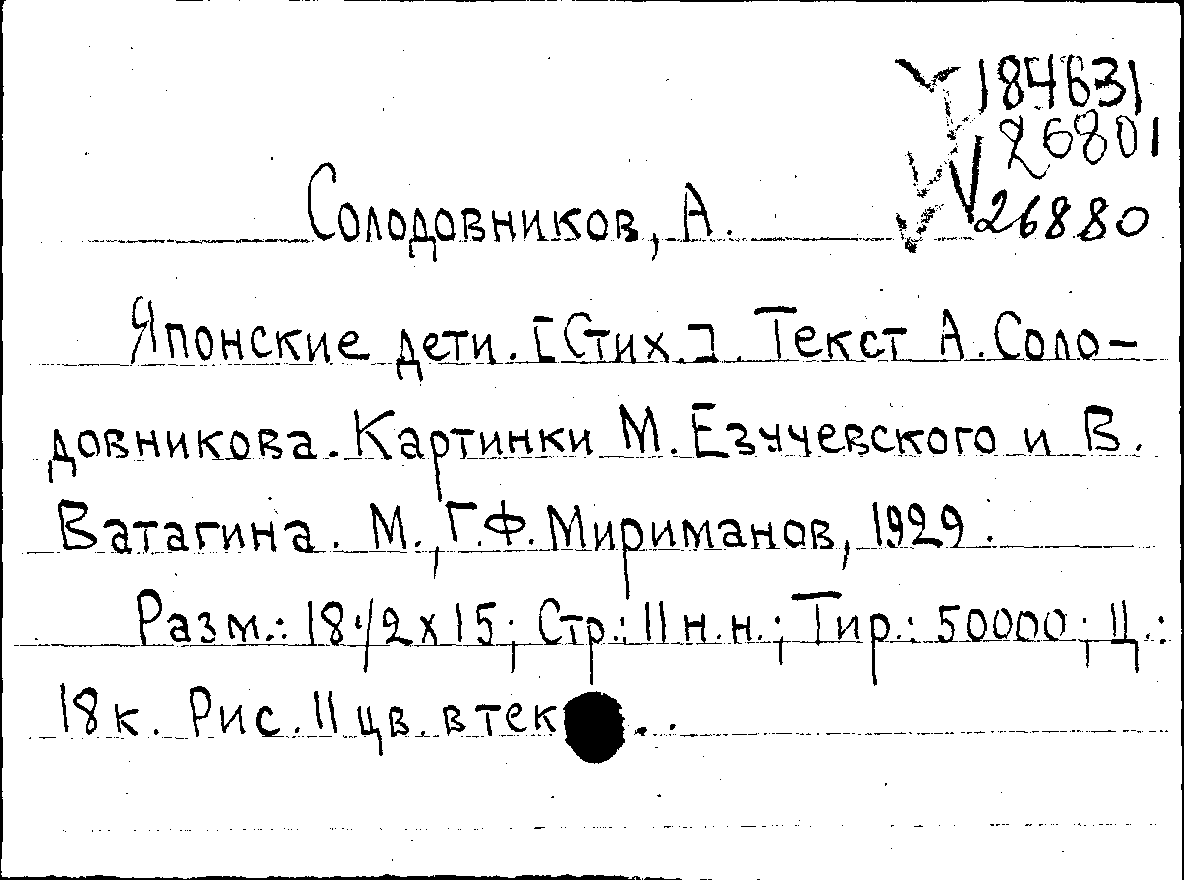 184631
26801
26880
Солодовников, А.
Японские дети. [Стих.]. Текст А. Соло-
довникова. Картинки М. Езучевского и В.
Ватагина. М., Г.Ф. Мириманов, 1929.
Разм.: 18 1/2 х 15; Стр.: 11 н.н.; Тир.: 50000; Ц.:
18 к. Рис. 11 цв. в тек